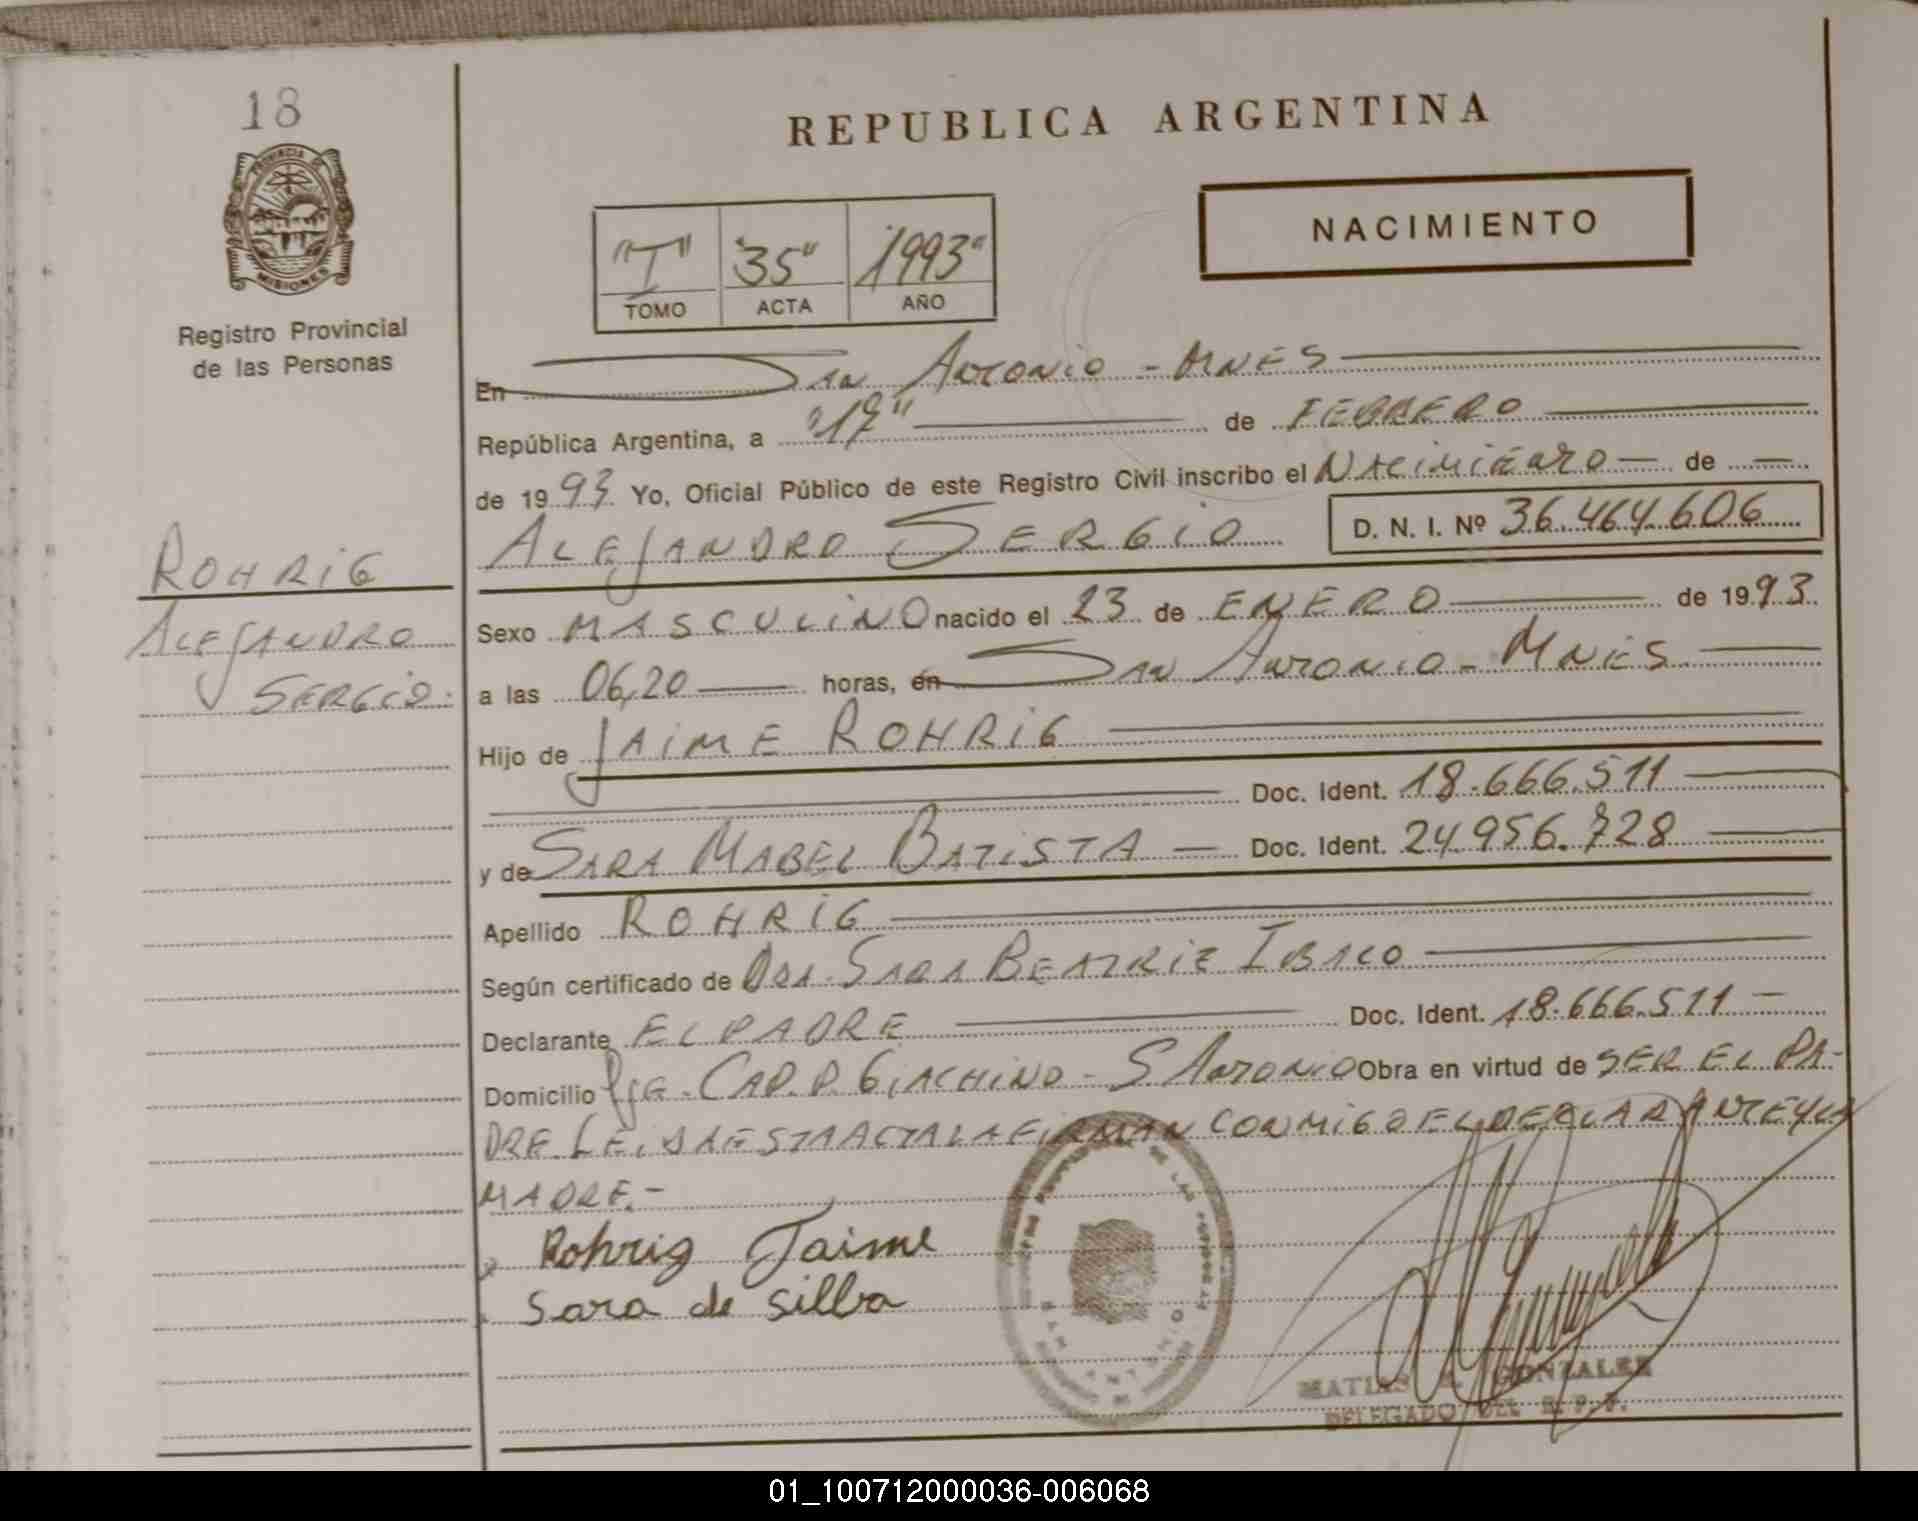 18
PROVINCIA DE
MISIONES
Registro Provincial
de las Personas
ROHRIG
ALEJANDRO
SERGIO.
REPUBLICA ARGENTINA
NACIMIENTO
"I" "35" "1993"
TOMO ACTA AÑO
En SAN ANTONIO - MNES
República Argentina, a "17" de FEBRERO
de 1993. Yo, Oficial Público de este Registro Civil inscribo el NACIMIENTO — de —
ALEJANDRO SERGIO D. N. I. Nº 36.464.606
Sexo MASCULINO nacido el 23 de ENERO de 1993.
a las 06,20 horas, en SAN ANTONIO - MNES
Hijo de JAIME ROHRIG
Doc. Ident. 18.666.511
y de SARA MABEL BATISTA — Doc. Ident. 24.956.728
Apellido ROHRIG
Según certificado de DRA. SARA BEATRIZ
Declarante EL PADRE Doc. Ident. 18.666.511 -
Domicilio CAP. P. GIACHINO - S ANTONIO Obra en virtud de SER EL PA-
DRE. LEIDA ESTA ACTA LA FIRMAN CONMIGO EL DECLARANTE Y LA
MADRE.-
x Rohrig Jaime
Sara de Silba
DE LAS
SAN ANTONIO
MATIAS GONZALEZ
DELEGADO DEL R. P. P.
01_100712000036-006068